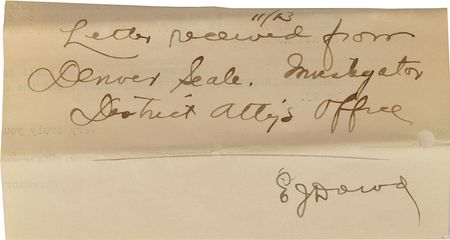 11/13
Letter received from
Denver Seale. Investigator
District Atty's Office
E J Dowd
very truly you